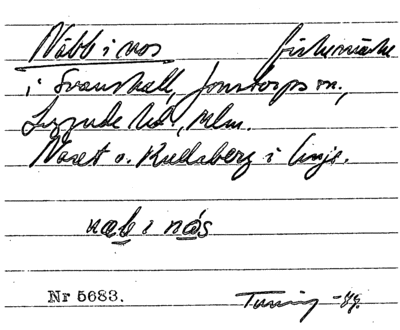 Näbb i nos fiskemärke
i Svanshall, Jonstorps sn.,
Luggude hd., Mlm.
Naset o. Kullaberg i linje.
næb i nås
Nr 5683.
Tuning -44.